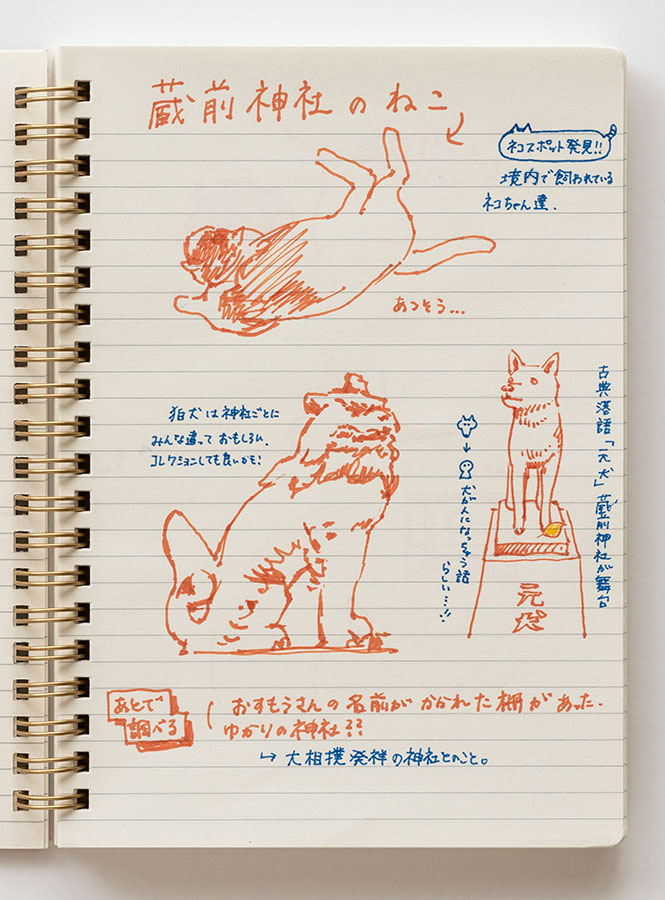 蔵前神社のねこ
ネコスポット発見!!
境内で飼われている
ネコちゃん達.
あつそう...
狛犬は神社ごとに
みんな違っておもしろい.
コレクションしても良いかも!
古典落語「元犬」蔵前神社が舞台
犬が人になっちゃう話
らしい…!!
元犬
あとで
調べる
おすもうさんの名前がかかれた柵があった.
ゆかりの神社??
↳ 大相撲発祥の神社とのこと。